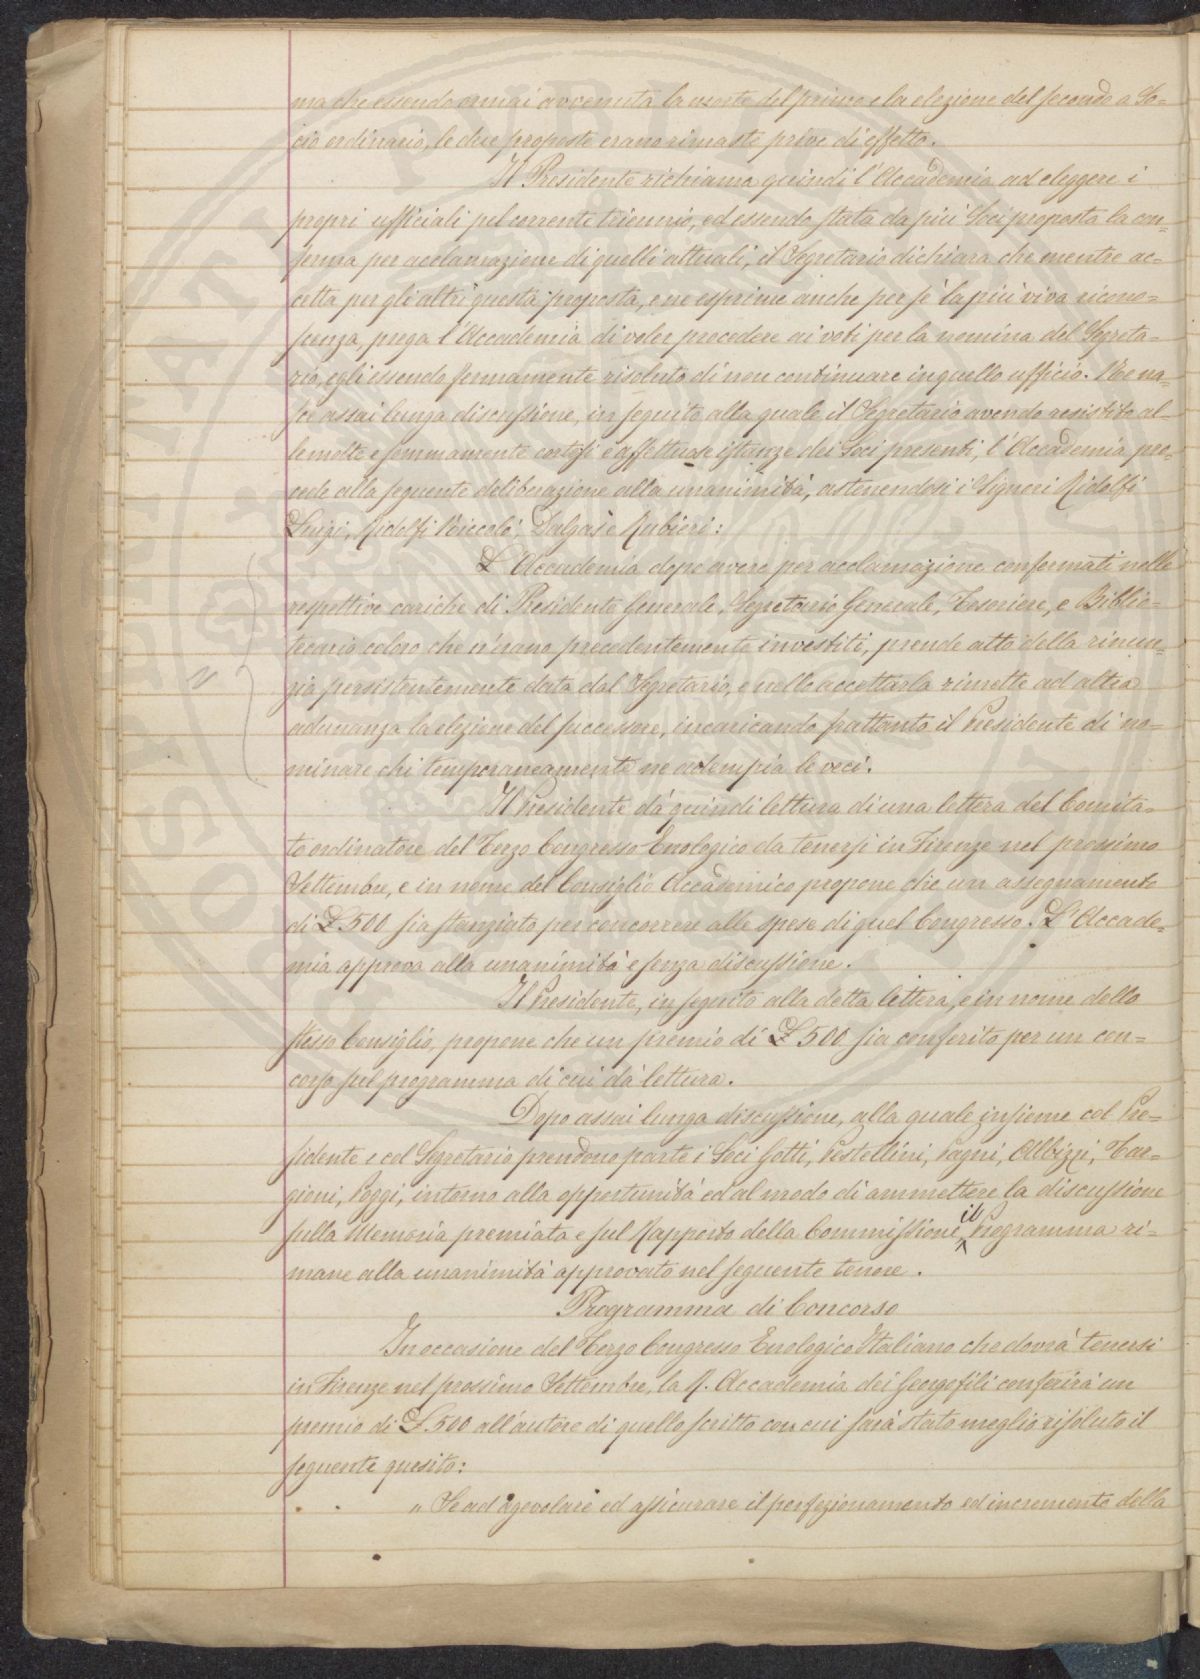 ma che essendo ormai avvenuta la morte del primo e la elezione del secondo a So=
cio ordinario, le due proposte erano rimaste prive di effetto.
Il Presidente richiama quindi l'Accademia ad eleggere i
propri ufficiali pel corrente triennio, ed essendo stata da più Soci proposta la con=
ferma per acclamazione di quelli attuali, il Segretario dichiara che mentre ac=
cetta per gli altri questa proposta, e ne esprime anche per sè la più viva ricono=
scenza, prega l'Accademia di voler procedere ai voti per la nomina del Segreta=
rio, egli essendo fermamente risoluto di non continuare in quello ufficio. Ne na=
sce assai lunga discussione, in seguito alla quale il Segretario avendo resistito al=
le molte e sommamente cortesi e affettuose istanze dei Soci presenti, l'Accademia pro=
cede alla seguente deliberazione alla unanimità, astenendosi i Signori Ridolfi
Luigi, Ridolfi Niccolò, Dalgas e Rubieri:
L'Accademia dopo avere per acclamazione confermati nelle
respettive cariche di Presidente Generale, Segretario Generale, Tesoriere, e Biblio=
tecario coloro che n'erano precedentemente investiti, prende atto della rinun=
zia persistentemente data dal Segretario, e nello accettarla rimette ad altra
adunanza la elezione del successore, incaricando frattanto il Presidente di no=
minare chi temporaneamente ne adempia le veci.
Il Presidente dà quindi lettura di una lettera del Comita=
to ordinatore del Terzo Congresso Enologico da tenersi in Firenze nel prossimo
Settembre, e in nome del Consiglio Accademico propone che un assegnamento
di £ 500 sia stanziato per concorrere alle spese di quel Congresso. L'Accade=
mia approva alla unanimità e senza discussione.
Il Presidente, in seguito alla detta lettera, e in nome dello
stesso Consiglio, propone che un premio di £ 500 sia conferito per un con=
corso sul programma di cui dà lettura.
Dopo assai lunga discussione, alla quale insieme col Pre=
sidente e col Segretario prendono parte i Soci Gotti, Pestellini, Pagni, Albizzi, Tar=
gioni, Poggi, intorno alla opportunità ed al modo di ammettere la discussione
sulla Memoria premiata e sul Rapporto della Commissione, il Programma ri=
mane alla unanimità approvato nel seguente tenore.
Programma di Concorso
In occasione del Terzo Congresso Enologico Italiano che dovrà tenersi
in Firenze nel prossimo Settembre, la R. Accademia dei Georgofili conferirà un
premio di £ 500 all'autore di quello scritto con cui sarà stato meglio risoluto il
seguente quesito:
" Se ad agevolare ed assicurare il perfezionamento ed incremento della